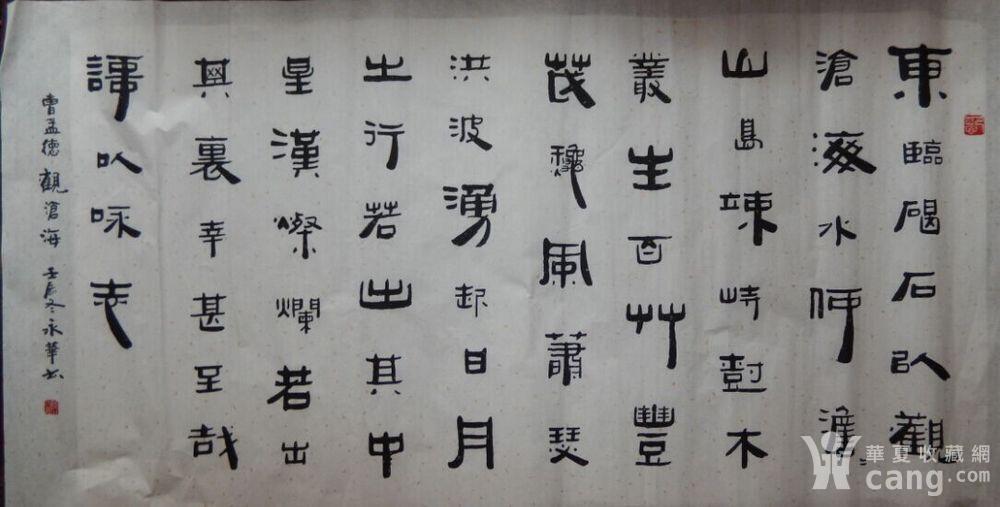 東臨碣石以觀
滄海水何澹々
山島竦峙樹木
叢生百艸豐
茂龝風蕭瑟
洪波湧起日月
之行若出其中
星漢燦爛若出
其裏幸甚至哉
謌以咏志
曹孟德觀滄海 壬辰冬永華書
華夏收藏網
cang.com